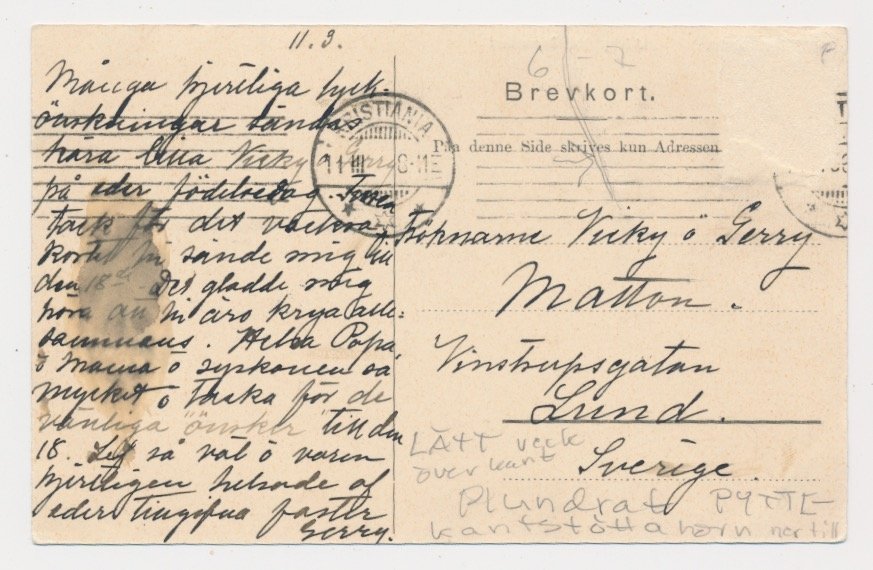 11.3.
Många hjertliga lyck-
önskningar sändas
kära lilla Vicky o Gerry
på eder födelsedag. Tusen
tack för det vackra
kortet ni sände mig till
den 18de. Det gladde mig
höra att ni äro krya alle-
sammans. Helsa Papa
o Mama o syskonen så
mycket o tacka för de
vänliga "önsker" till den
18. Lef så väl o varen
hjertligen helsade af
eder tillgifna faster
Gerry.
KRISTIANIA
11 III 8-11E
6 - 7
Brevkort.
Paa denne Side skrives kun Adressen
Fröknarne Vicky o Gerry
Matton.
Vinstrupsgatan
Lund.
Sverige
LÄTT veck
över kant
Plundrat PYTTE
kantstötta hörn ner till